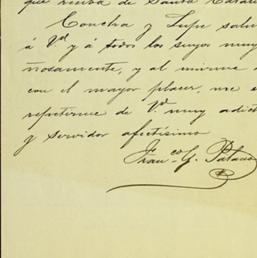 que reciba de Santa
Concha y Lupe salu
á Vd y á todos los suyos muy
ñosamente, y al mismo
con el mayor placer, me
repetirme de Vd muy adict
y servidor afectísimo
Fran.co G.